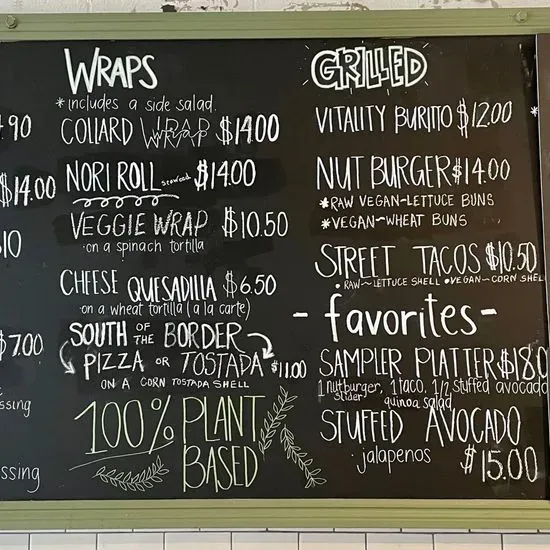 90
$14.00
$10
$7.00
ssing
essing
WRAPS
*includes a side salad.
COLLARD WRAP $14.00
NORI ROLL seaweed $14.00
VEGGIE WRAP $10.50
on a spinach tortilla
CHEESE QUESADILLA $6.50
on a wheat tortilla (a la carte)
SOUTH OF THE BORDER
PIZZA OR TOSTADA $11.00
ON A CORN TOSTADA SHELL
100% PLANT
BASED
GRILLED
VITALITY BURITTO $12.00
NUT BURGER $14.00
*RAW VEGAN~LETTUCE BUNS
*VEGAN~WHEAT BUNS
STREET TACOS $10.50
• RAW~LETTUCE SHELL • VEGAN~CORN SHELL
- favorites -
SAMPLER PLATTER $18.0
1 nutburger, 1 taco, 1/2 stuffed avocado
slider quinoa salad
STUFFED AVOCADO
· jalapenos $15.00